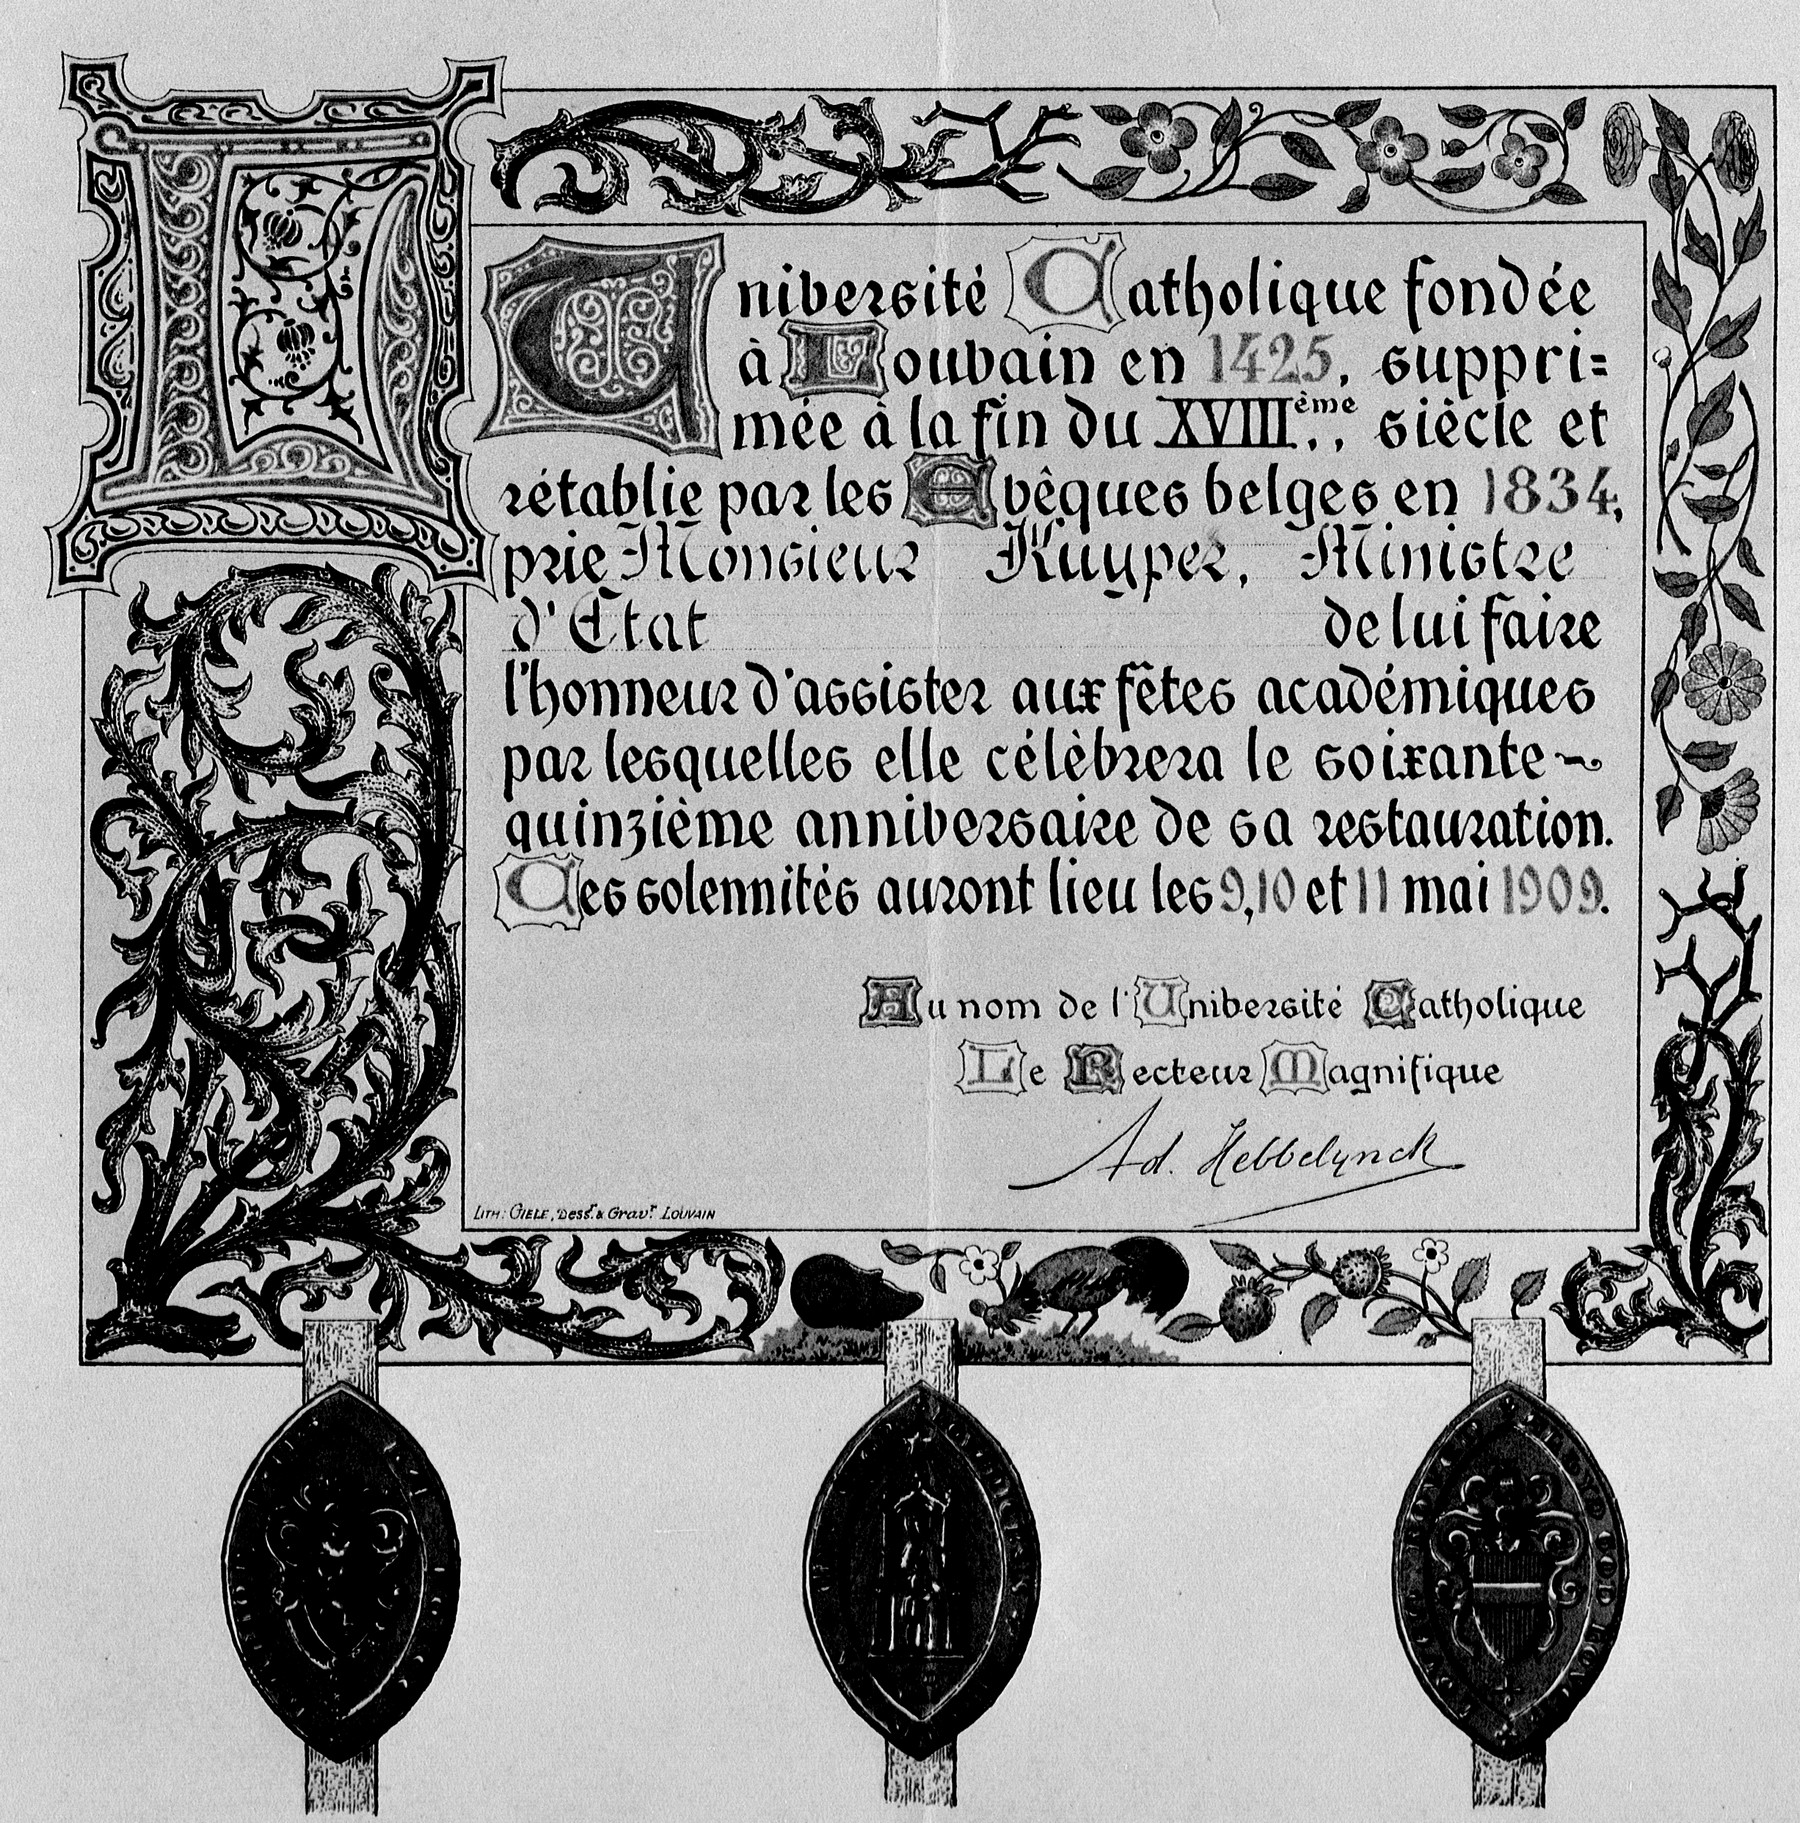 L'Université Catholique fondée
à Louvain en 1425, suppri=
mée à la fin du XVIIIème., siècle et
rétablie par les Evêques belges en 1834,
prie Monsieur Kuyper, Ministre
d'Etat de lui faire
l'honneur d'assister aux fêtes académiques
par lesquelles elle célèbrera le soixante~
quinzième anniversaire de sa restauration.
Ces solennités auront lieu les 9, 10 et 11 mai 1909.
Au nom de l'Université Catholique
Le Recteur Magnifique
Ad. Hebbelynck
LITH: GIELE, Dessr. & Gravr. LOUVAIN